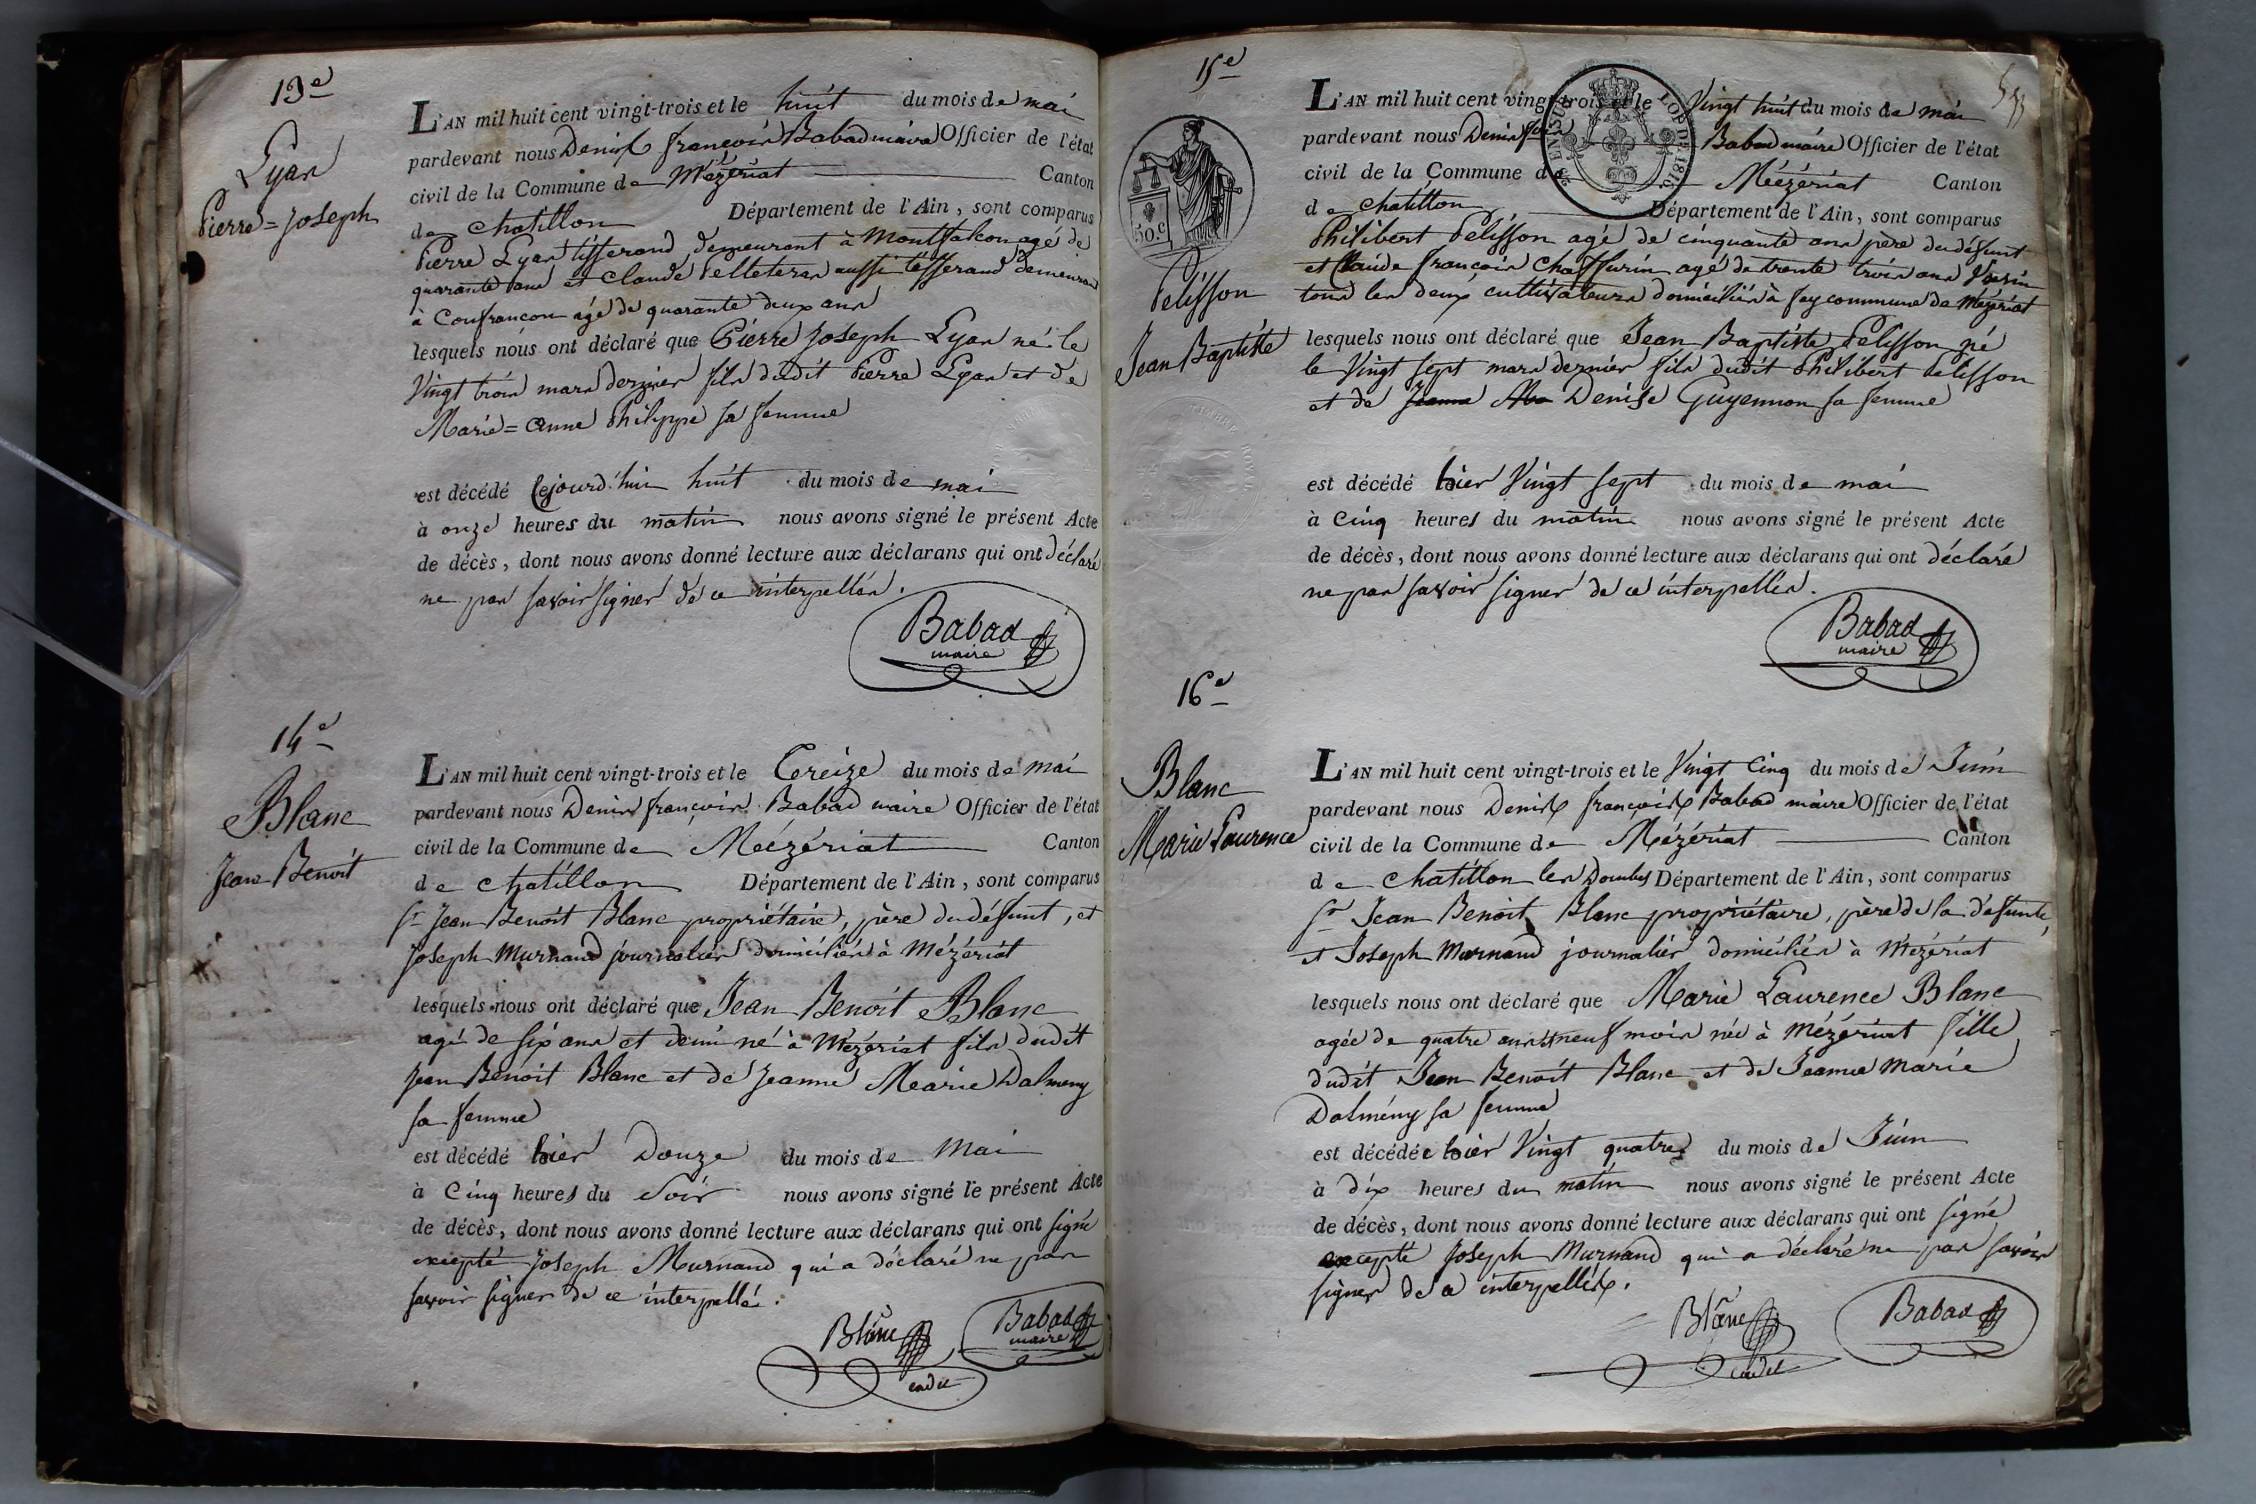 13e
Lyan
Pierre=Joseph
L'AN mil huit cent vingt-trois et le huit du mois de mai
pardevant nous Denis françois Babad maire Officier de l'état
civil de la Commune de Mézériat Canton
de chatillon Département de l'Ain, sont comparus
Pierre Lyan tisserand demeurant à Montfalcon agé de
quarante ans et Claude Pelleteran aussi tisserand demeurant
à Confrancon agé de quarante deux ans
lesquels nous ont déclaré que Pierre Joseph Lyan né le
Vingt trois mars dernier fils dudit Pierre Lyan et de
Marie=anne Philippe sa femme
est décédé cejourd'hui huit du mois de mai
à onze heures du matin nous avons signé le présent Acte
de décès, dont nous avons donné lecture aux déclarans qui ont déclaré
ne pas savoir signer de ce interpellés.
Babad
maire
14e
Blanc
Jean Benoit
L'AN mil huit cent vingt-trois et le treize du mois de mai
pardevant nous Denis françois Babad maire Officier de l'état
civil de la Commune de Mézériat Canton
de chatillon Département de l'Ain, sont comparus
Sr Jean Benoit Blanc propriétaire, père du défunt, et
Joseph Murnand journalier domiciliés à Mézériat
lesquels nous ont déclaré que Jean Benoit Blanc
agé de six ans et demi né à Mézériat fils dudit
Jean Benoit Blanc et de Jeanne Marie Dalmeny
sa femme
est décédé hier Douze du mois de Mai
à Cinq heures du Soir nous avons signé le présent Acte
de décès, dont nous avons donné lecture aux déclarans qui ont signé
excepté Joseph Murnand qui a déclaré ne pas
savoir signer de ce interpellé.
Blanc
cadet
Babad
maire
15e
Pelisson
Jean Baptiste
50.c
L'AN mil huit cent vingt-trois et le Vingt huit du mois de mai
pardevant nous Denis fçois Babad maire Officier de l'état
civil de la Commune de Mézériat Canton
de chatillon Département de l'Ain, sont comparus
Philibert Pelisson agé de cinquante ans père du défunt
et Claude françois Chaffurin agé de trente trois ans Voisin
tous les deux cultivateurs domiciliés à fey commune de Mézériat
lesquels nous ont déclaré que Jean Baptiste Pelisson né
le Vingt sept mars dernier fils dudit Philibert Pelisson
et de Jeanne Ma Denise Guyennon sa femme
est décédé hier Vingt sept du mois de mai
à Cinq heures du matin nous avons signé le présent Acte
de décès, dont nous avons donné lecture aux déclarans qui ont déclaré
ne pas savoir signer de ce interpellés.
Babad
maire
16e
Blanc
Marie Laurence
L'AN mil huit cent vingt-trois et le Vingt Cinq du mois de Juin
pardevant nous Denis françois Babad maire Officier de l'état
civil de la Commune de Mézériat Canton
de chatillon les Dombes Département de l'Ain, sont comparus
Sr Jean Benoit Blanc propriétaire, père de la défunte,
et Joseph Murnand journalier domiciliés à Mézériat
lesquels nous ont déclaré que Marie Laurence Blanc
agée de quatre ans et neuf mois née à Mézériat fille
dudit Jean Benoit Blanc et de Jeanne Marie
Dalmény sa femme
est décédée hier Vingt quatre du mois de Juin
à dix heures du matin nous avons signé le présent Acte
de décès, dont nous avons donné lecture aux déclarans qui ont signé
excepté Joseph Murnand qui a déclaré ne pas savoir
signer de ce interpellé.
Blanc
cadet
Babad